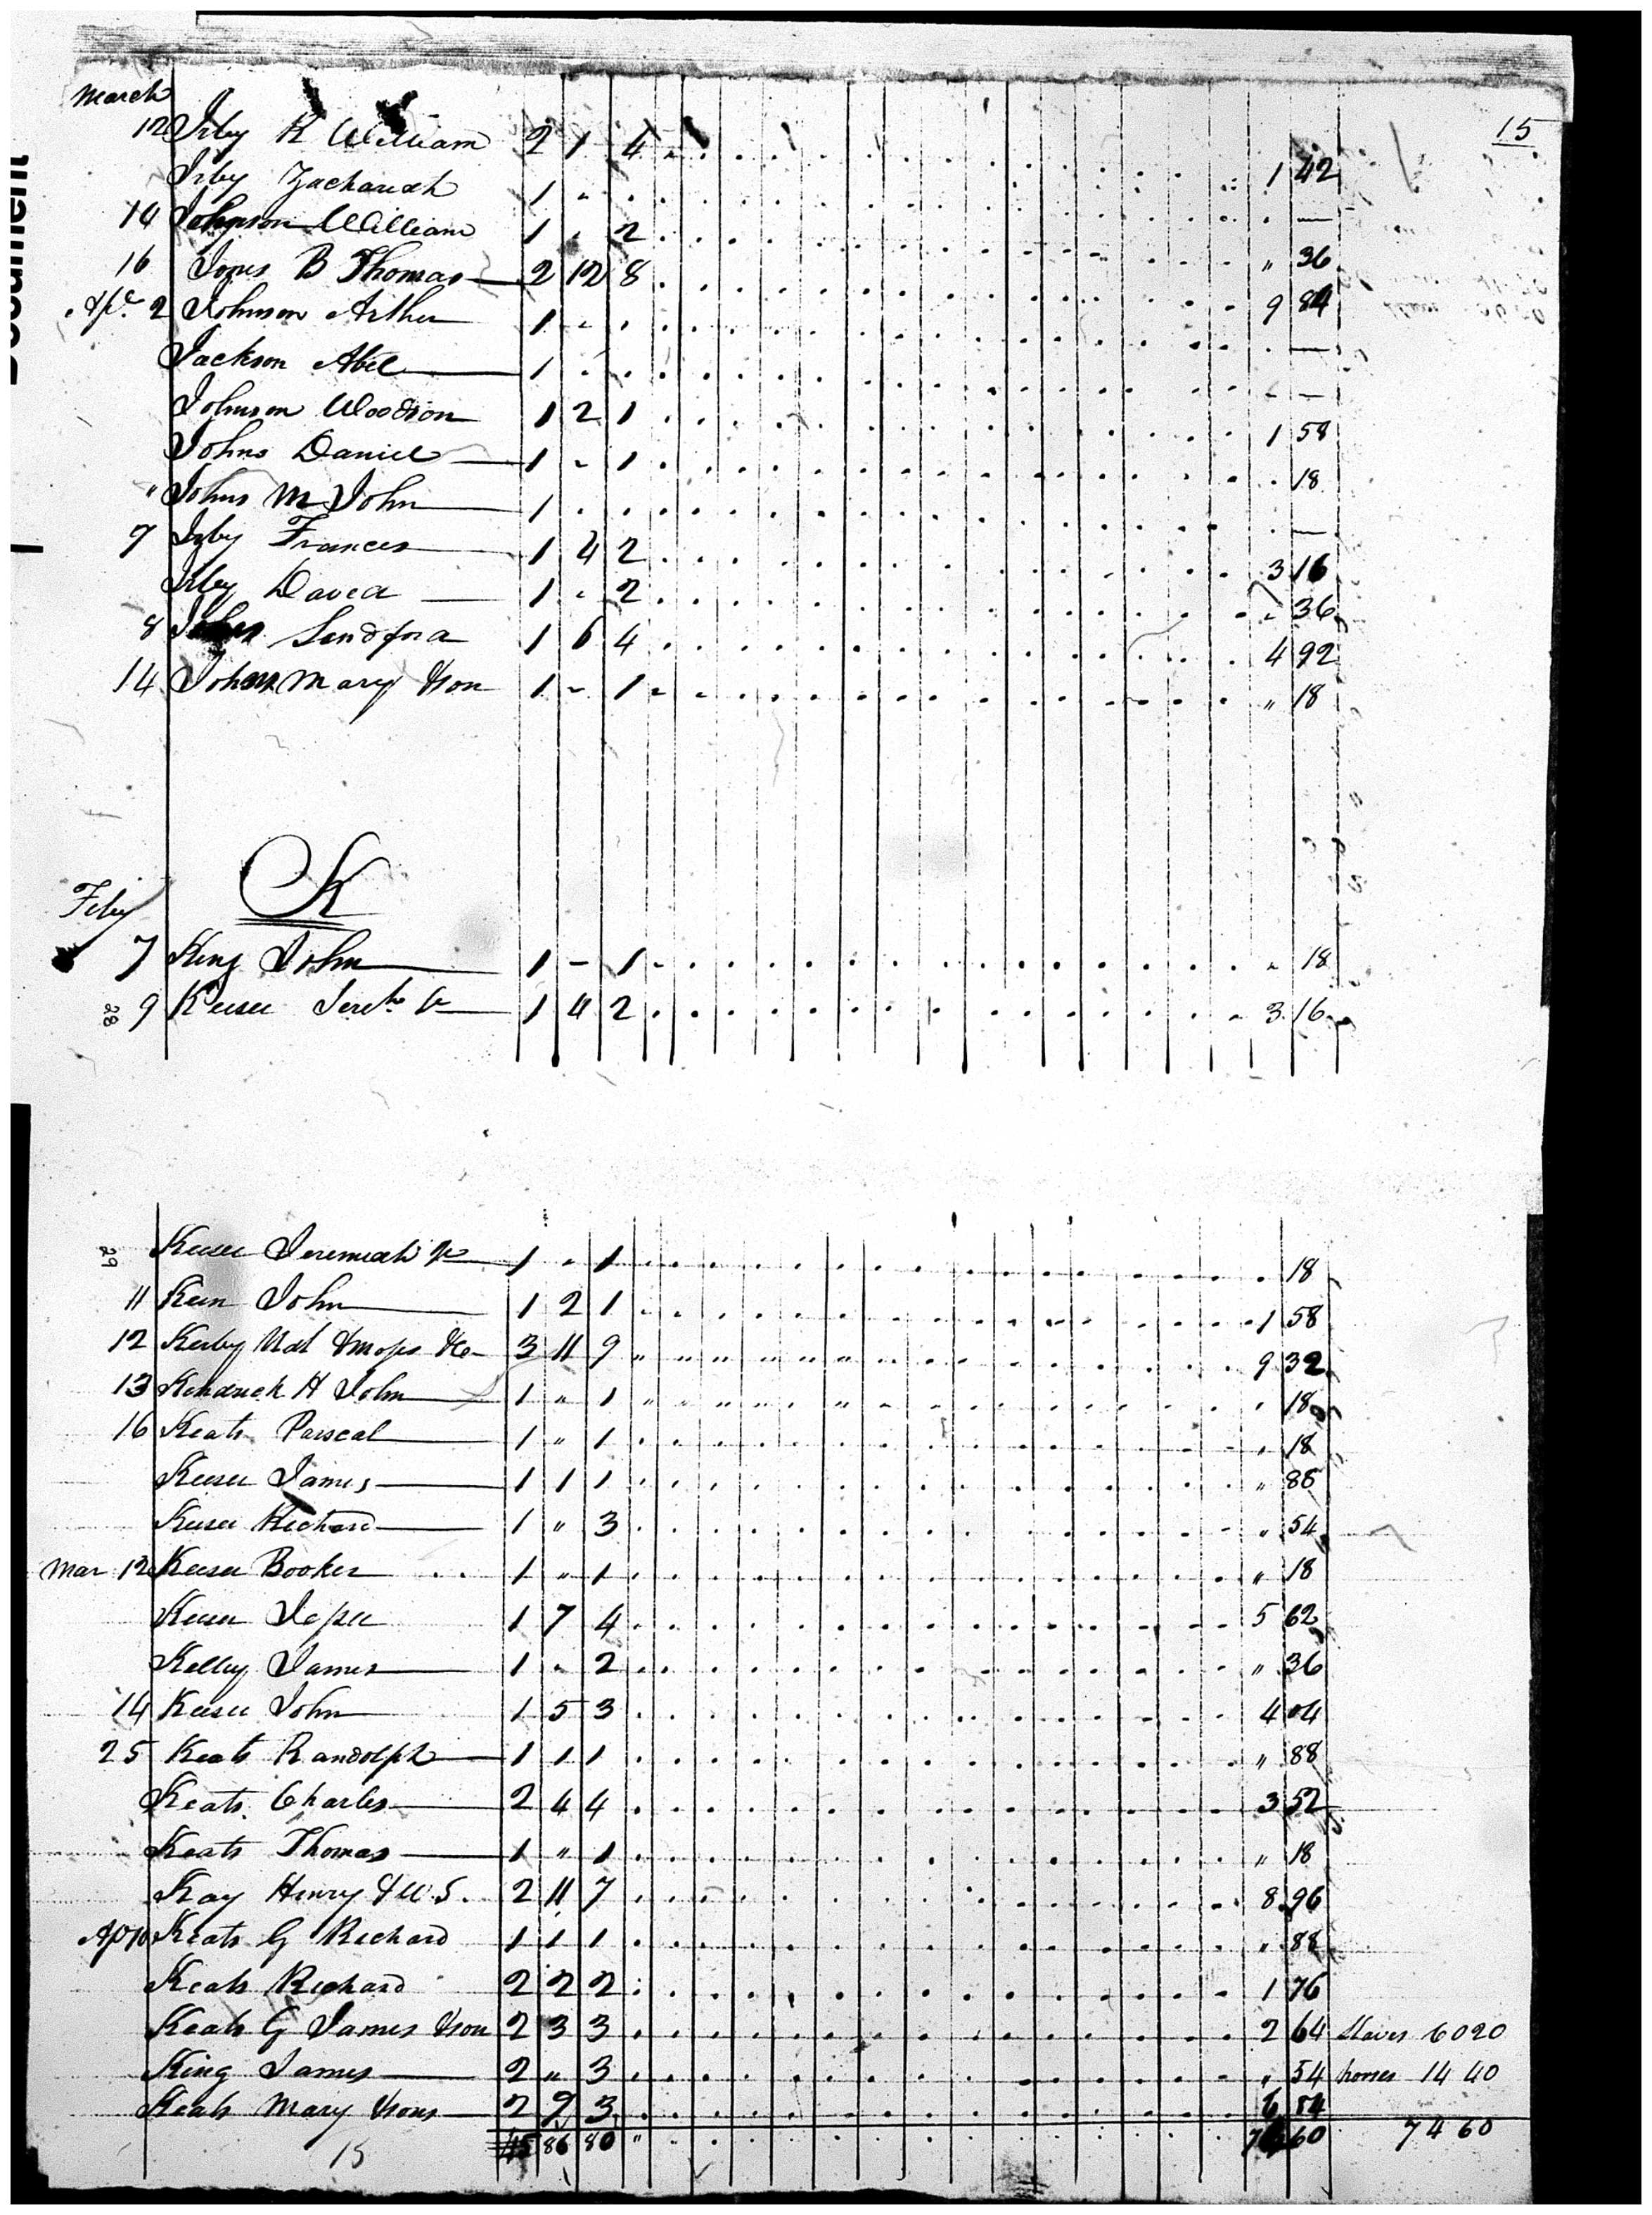 March
15
12 Irby K William 2 1 4 1 42
Irby Zachariah 1 - . —
14 Johnson William 1 . 2 " 36
16 Jones B Thomas 2 12 8 9 84
Ap.l 2 Johnson Arther 1 - . . —
Jackson Abel 1 . . - —
Johnson Woodson 1 2 1 1 58
Johns Daniel 1 - 1 . 18
" Johns M John 1 . . . —
7 Irby Frances 1 4 2 3 16
Irby David 1 - 2 - 36
8 Sandford 1 6 4 4 92
14 Johns Mary & son 1 - 1 " 18
K
Feby
7 King John 1 - 1 - 18
28 9 Keesee Jerh. Sr 1 4 2 3 16
29 Keesee Jeremiah Jr 1 - 1 . 18
11 Keen John 1 2 1 1 58
12 Kerby & Moses &Co 3 11 9 9 32
13 Kendrick H John 1 " 1 . 18
16 Keats Pascal 1 " 1 . 18
Keesee James 1 1 1 " 88
Keesee Richard 1 " 3 " 54
Mar 12 Keesee Booker 1 " 1 " 18
Keesee Jesse 1 7 4 5 62
Kelley James 1 - 2 " 36
14 Keesee John 1 5 3 4 04
25 Keats Randolph 1 1 1 " 88
Keats Charles 2 4 4 3 52
Keats Thomas 1 " 1 " 18
Kay Henry & W. S. 2 11 7 8 96
Ap 10 Keats G Richard 1 1 1 " 88
Keats Richard 2 2 2 1 76
Keats G James & son 2 3 3 2 64 Slaves 60 20
King James 2 " 3 " 54 horses 14 40
Keats Mary & sons 2 9 3 6 84
15 45 86 80 " 74 60 74 60